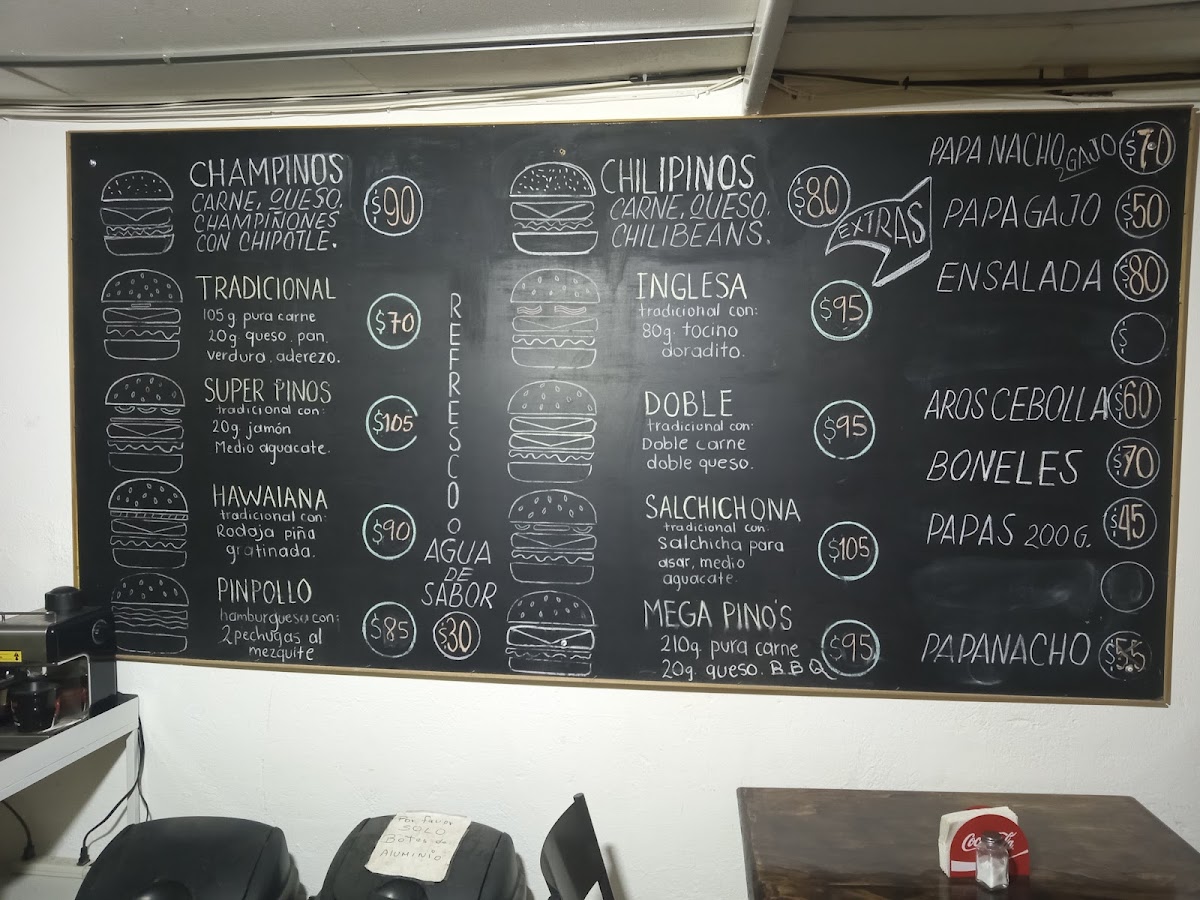 CHAMPINOS
CARNE, QUESO,
CHAMPIÑONES
CON CHIPOTLE.
$90
TRADICIONAL
105g pura carne
20g queso, pan,
verdura, aderezo.
$70
SUPER PINOS
tradicional con:
20g jamón
Medio aguacate.
$105
HAWAIANA
tradicional con:
Rodaja piña
gratinada.
$90
PINPOLLO
hamburguesa con:
2 pechugas al
mezquite
$85
REFRESCO
o
AGUA
DE
SABOR
$30
CHILIPINOS
CARNE, QUESO,
CHILIBEANS.
$80
INGLESA
tradicional con:
80g tocino
doradito.
$95
DOBLE
tradicional con:
Doble carne
doble queso.
$95
SALCHICHONA
tradicional con
Salchicha para
asar, medio
aguacate.
$105
MEGA PINO'S
210g pura carne
20g queso. B.B.Q
$95
EXTRAS
PAPA NACHO GAJO $70
PAPA GAJO $50
ENSALADA $80
$
AROS CEBOLLA $60
BONELES $70
PAPAS 200G. $45
PAPANACHO $55
Por favor
SOLO
Botes de
ALUMINIO